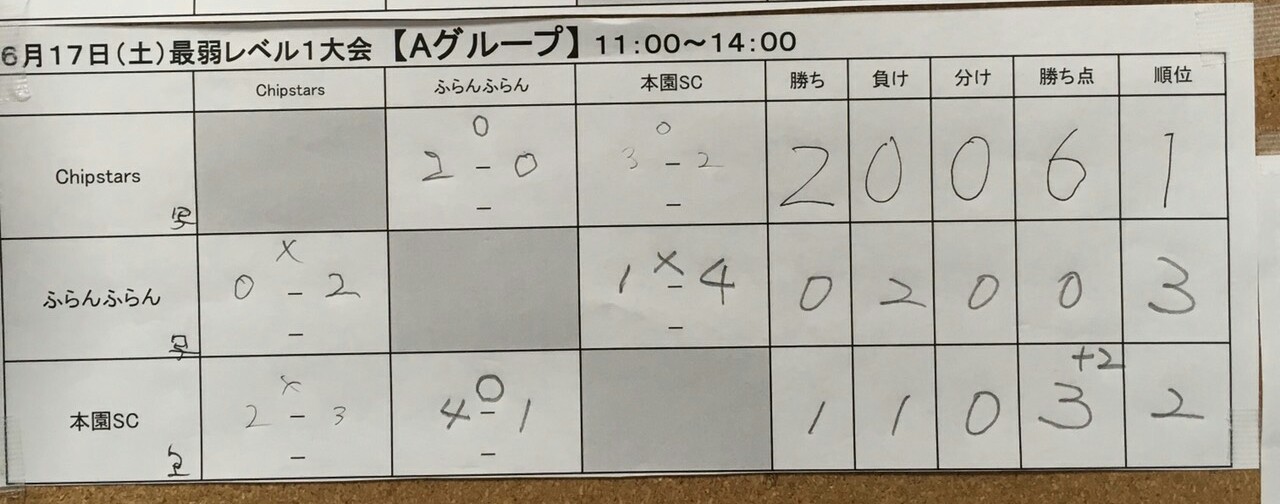 6月17日(土)最弱レベル1大会 【Aグループ】 11:00~14:00
Chipstars ふらんふらん 本園SC 勝ち 負け 分け 勝ち点 順位
○ ○
Chipstars 2 - 0 3 - 2 2 0 0 6 1
- -
× ×
ふらんふらん 0 - 2 1 - 4 0 2 0 0 3
- -
× ○ +2
本園SC 2 - 3 4 - 1 1 1 0 3 2
- -